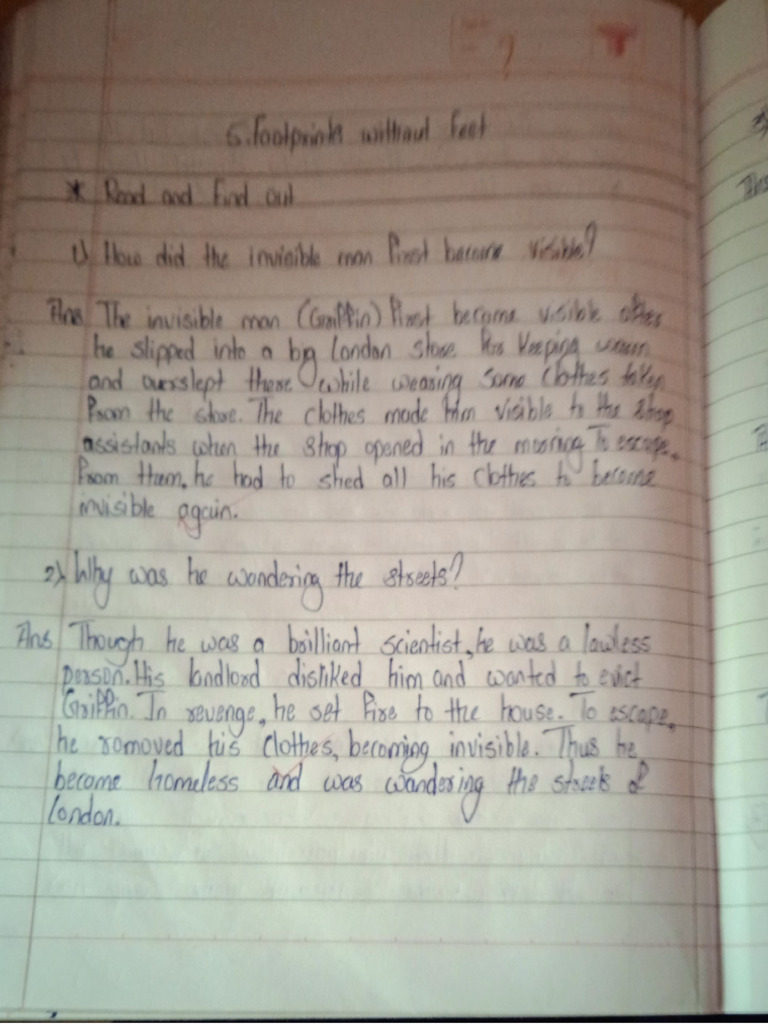 5. Footprints without Feet
* Read and Find out
1) How did the invisible man first become visible?
Ans The invisible man (Griffin) first became visible after
he slipped into a big London store for keeping warm
and overslept there while wearing some clothes taken
from the store. The clothes made him visible to the shop
assistants when the shop opened in the morning. To escape,
from them, he had to shed all his clothes to become
invisible again.
2) Why was he wondering the streets?
Ans Though he was a brilliant scientist, he was a lawless
person. His landlord disliked him and wanted to evict
Griffin. In revenge, he set fire to the house. To escape,
he removed his clothes, becoming invisible. Thus he
become homeless and was wandering the streets of
London.